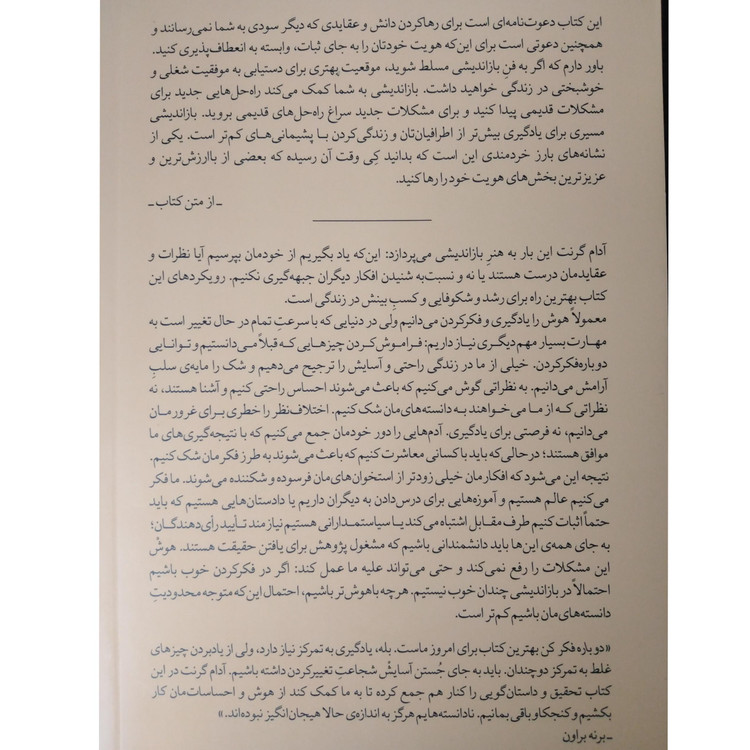 این کتاب دعوت‌نامه‌ای است برای رهاکردن دانش و عقایدی که دیگر سودی به شما نمی‌رسانند و
همچنین دعوتی است برای این‌که هویت خودتان را به جای ثبات، وابسته به انعطاف‌پذیری کنید.
باور دارم که اگر به فنِ بازاندیشی مسلط شوید، موقعیت بهتری برای دستیابی به موفقیت شغلی و
خوشبختی در زندگی خواهید داشت. بازاندیشی به شما کمک می‌کند راه‌حل‌هایی جدید برای
مشکلات قدیمی پیدا کنید و برای مشکلات جدید سراغ راه‌حل‌های قدیمی بروید. بازاندیشی
مسیری برای یادگیری بیش‌تر از اطرافیان‌تان و زندگی‌کردن با پشیمانی‌های کم‌تر است. یکی از
نشانه‌های بارز خردمندی این است که بدانید کِی وقت آن رسیده که بعضی از باارزش‌ترین و
عزیزترین بخش‌های هویت خود را رها کنید.
ـ از متن کتاب ـ
آدام گرنت این بار به هنرِ بازاندیشی می‌پردازد: این‌که یاد بگیریم از خودمان بپرسیم آیا نظرات و
عقایدمان درست هستند یا نه و نسبت‌به شنیدن افکار دیگران جبهه‌گیری نکنیم. رویکردهای این
کتاب بهترین راه برای رشد و شکوفایی و کسبِ بینش در زندگی است.
معمولاً هوش را یادگیری و فکرکردن می‌دانیم ولی در دنیایی که با سرعتِ تمام در حال تغییر است به
مهارت بسیار مهم دیگری نیاز داریم: فراموش‌کردن چیزهایی که قبلاً می‌دانستیم و توانایی
دوباره‌فکرکردن. خیلی از ما در زندگی راحتی و آسایش را ترجیح می‌دهیم و شک را مایه‌ی سلبِ
آرامش می‌دانیم. به نظراتی گوش می‌کنیم که باعث می‌شوند احساس راحتی کنیم و آشنا هستند، نه
نظراتی که از ما می‌خواهند به دانسته‌های‌مان شک کنیم. اختلاف‌نظر را خطری برای غرورمان
می‌دانیم، نه فرصتی برای یادگیری. آدم‌هایی را دور خودمان جمع می‌کنیم که با نتیجه‌گیری‌های ما
موافق هستند؛ در حالی‌که باید با کسانی معاشرت کنیم که باعث می‌شوند به طرز فکرمان شک کنیم.
نتیجه این می‌شود که افکارمان خیلی زودتر از استخوان‌های‌مان فرسوده و شکننده می‌شوند. ما فکر
می‌کنیم عالم هستیم و آموزه‌هایی برای درس‌دادن به دیگران داریم یا دادستان‌هایی هستیم که باید
حتماً اثبات کنیم طرف مقابل اشتباه می‌کند یا سیاستمدارانی هستیم نیازمند تأیید رأی‌دهندگان؛
به جای همه‌ی این‌ها باید دانشمندانی باشیم که مشغول پژوهش برای یافتن حقیقت هستند. هوشْ
این مشکلات را رفع نمی‌کند و حتی می‌تواند علیه ما عمل کند: اگر در فکرکردن خوب باشیم
احتمالاً در بازاندیشی چندان خوب نیستیم. هرچه باهوش‌تر باشیم، احتمال این‌که متوجه محدودیتِ
دانسته‌های‌مان باشیم کم‌تر است.
«دوباره فکر کن بهترین کتاب برای امروز ماست. بله، یادگیری به تمرکز نیاز دارد، ولی از یادبردن چیزهای
غلط به تمرکز دوچندان. باید به جای جُستن آسایشْ شجاعتِ تغییرکردن داشته باشیم. آدام گرنت در این
کتاب تحقیق و داستان‌گویی را کنار هم جمع کرده تا به ما کمک کند از هوش و احساسات‌مان کار
بکشیم و کنجکاو باقی بمانیم. نادانسته‌هایم هرگز به اندازه‌ی حالا هیجان‌انگیز نبوده‌اند.»
ـ برنه براون